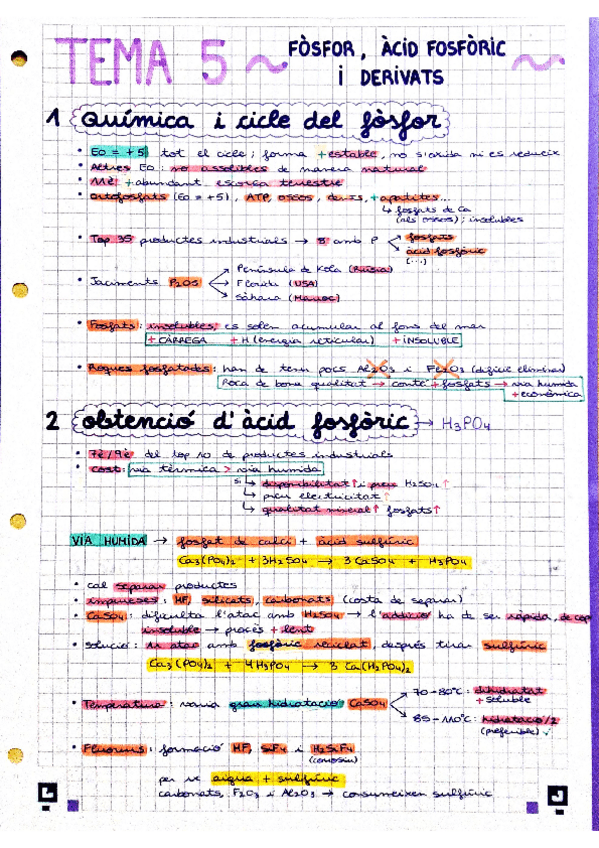 TEMA 5 ~ FÒSFOR, ÀCID FOSFÒRIC ~
i DERIVATS
1 Química i cicle del fòsfor
• Eo = +5 tot el cicle; forma +estable, no s'oxida ni es redueix
• Altres Eo: no assolibles de manera natural
• 11è +abundant escorça terrestre
• Ortofosfats (Eo = +5), ATP, ossos, dents, +apatites...
↳ fosfats de Ca
(als ossos); insolubles
• Top 35 productes industrials → 8 amb P
fosfats
àcid fosfòric
(...)
• Jaciments P2O5
Península de Kola (Rússia)
Florida (USA)
Sàhara (Marroc)
• Fosfats: insolubles, es solen acumular al fons del mar
+ CÀRREGA +H (energia reticular) + INSOLUBLE
• Roques fosfatades: han de tenir pocs Al2O3 i Fe2O3 (difícil eliminar)
Roca de bona qualitat → conté + fosfats → via humida
+ econòmica
2 obtenció d'àcid fosfòric → H3PO4
• 7è/9è del top 10 de productes industrials
• cost: via tèrmica > via humida
si ↳ disponibilitat ↑ i preu H2SO4 ↑
↳ preu electricitat ↑
↳ qualitat mineral ↑ fosfats ↑
VIA HUMIDA → fosfat de calci + àcid sulfúric
Ca3(PO4)2 + 3H2SO4 → 3CaSO4 + H3PO4
• cal separar productes
• impureses: HF, silicats, carbonats (costa de separar)
• CaSO4: dificulta l'atac amb H2SO4 → l'addició ha de ser ràpida, de cop
insoluble → procés + lent
• solució: 1r atac amb fosfòric reciclat, després tirar sulfúric
Ca3(PO4)2 + 4H3PO4 → 3Ca(H2PO4)2
• Temperatura: varia grau hidratació CaSO4
70-80ºC: dihidratat
+ soluble
85-110ºC: hidratació 1/2
(preferible) ✓
• Fluorurs: formació HF, SiF4 i H2SiF4
(corrosiu)
aigua + sulfúric
carbonats, F2O3 i Al2O3 → consumeixen sulfúric